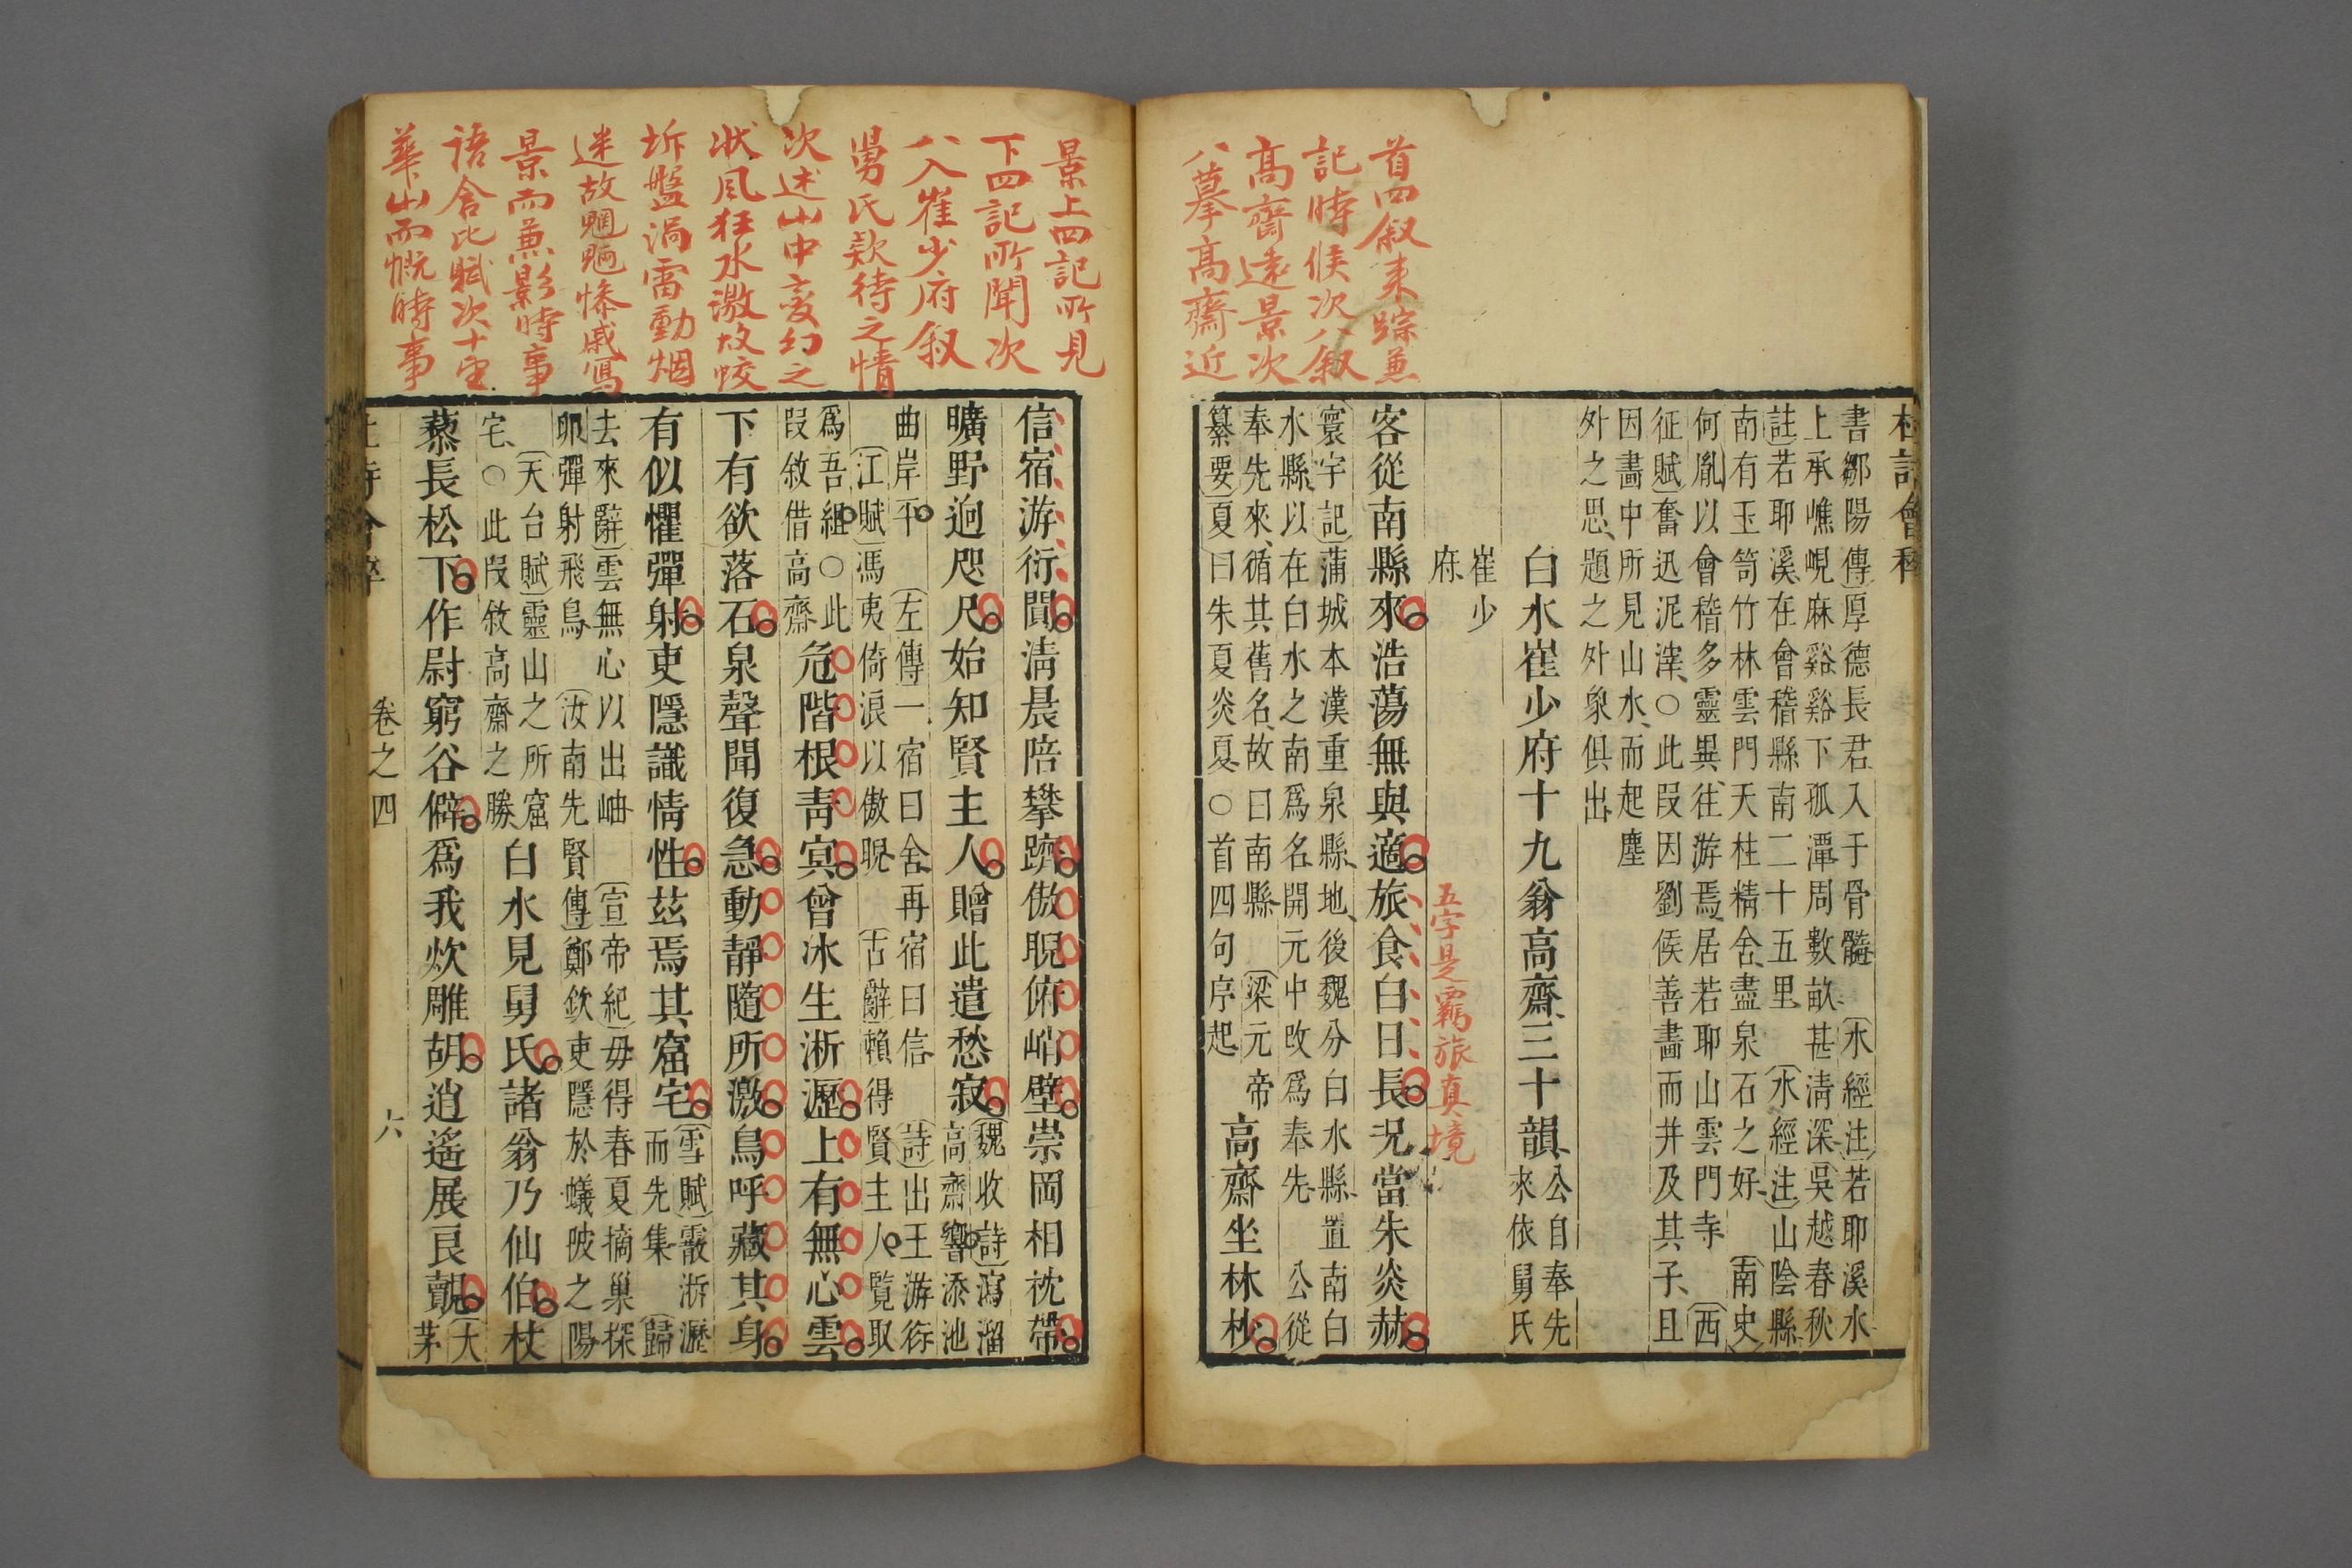 首四叙来踪兼
記時候次八叙
高齋遠景次
八摹高齋近
杜詩會稡
書鄒陽傳〕厚德長君入于骨髓〔水經注〕若耶溪水
上承嶕峴麻谿谿下孤潭周數畝甚淸深〔吳越春秋
註〕若耶溪在會稽縣南二十五里〔水經注〕山陰縣
南有玉笥竹林雲門天柱精舍盡泉石之好〔南史〕
何胤以會稽多靈異往游焉居若耶山雲門寺〔西
征賦〕奮迅泥滓○此段因劉侯善畫而并及其子且
因畫中所見山水而起塵
外之思題之外象俱出
白水崔少府十九翁高齋三十韻
公自奉先
來依舅氏
崔少
府
五字是羈旅真境
客從南縣來浩蕩無與適旅食白日長況當朱炎赫
〔寰宇記〕蒲城本漢重泉縣地後魏分白水縣置南白
水縣以在白水之南爲名開元中改爲奉先 公從
奉先來循其舊名故曰南縣〔梁元帝
纂要〕夏曰朱夏炎夏○首四句序起
高齋坐林杪
景上四記所見
下四記所聞次
八入崔少府叙
舅氏款待之情
次述山中变幻之
状風狂水激故蛟
坼盤渦雷動烟
迷故魍魎惨戚寫
景而兼影時事
語含比賦次十
華山而慨時事
信宿游衍闃淸晨陪攀躋傲睨俯峭壁崇岡相枕帶
曠野迥咫尺始知賢主人贈此遣愁寂
〔魏收詩〕瀉溜
高齋響添池
曲岸平〔左傳〕一宿曰舍再宿曰信〔詩〕出王游衍
〔江賦〕馮夷倚浪以傲睨〔古辭〕賴得賢主人覽取
爲吾組○此
段敘借高齋
危階根靑冥曾冰生淅瀝上有無心雲
下有欲落石泉聲聞復急動靜隨所激鳥呼藏其身
有似懼彈射吏隱識情性茲焉其窟宅
〔雪賦〕霰淅瀝
而先集〔歸
去來辭〕雲無心以出岫〔宣帝紀〕毋得春夏摘巢探
卵彈射飛鳥〔汝南先賢傳〕鄭欽吏隱於蟻陂之陽
〔天台賦〕靈山之所窟
宅○此段敘高齋之勝
白水見舅氏諸翁乃仙伯杖
藜長松下作尉窮谷僻爲我炊雕胡逍遙展良覿
〔大
茅
卷之四
六